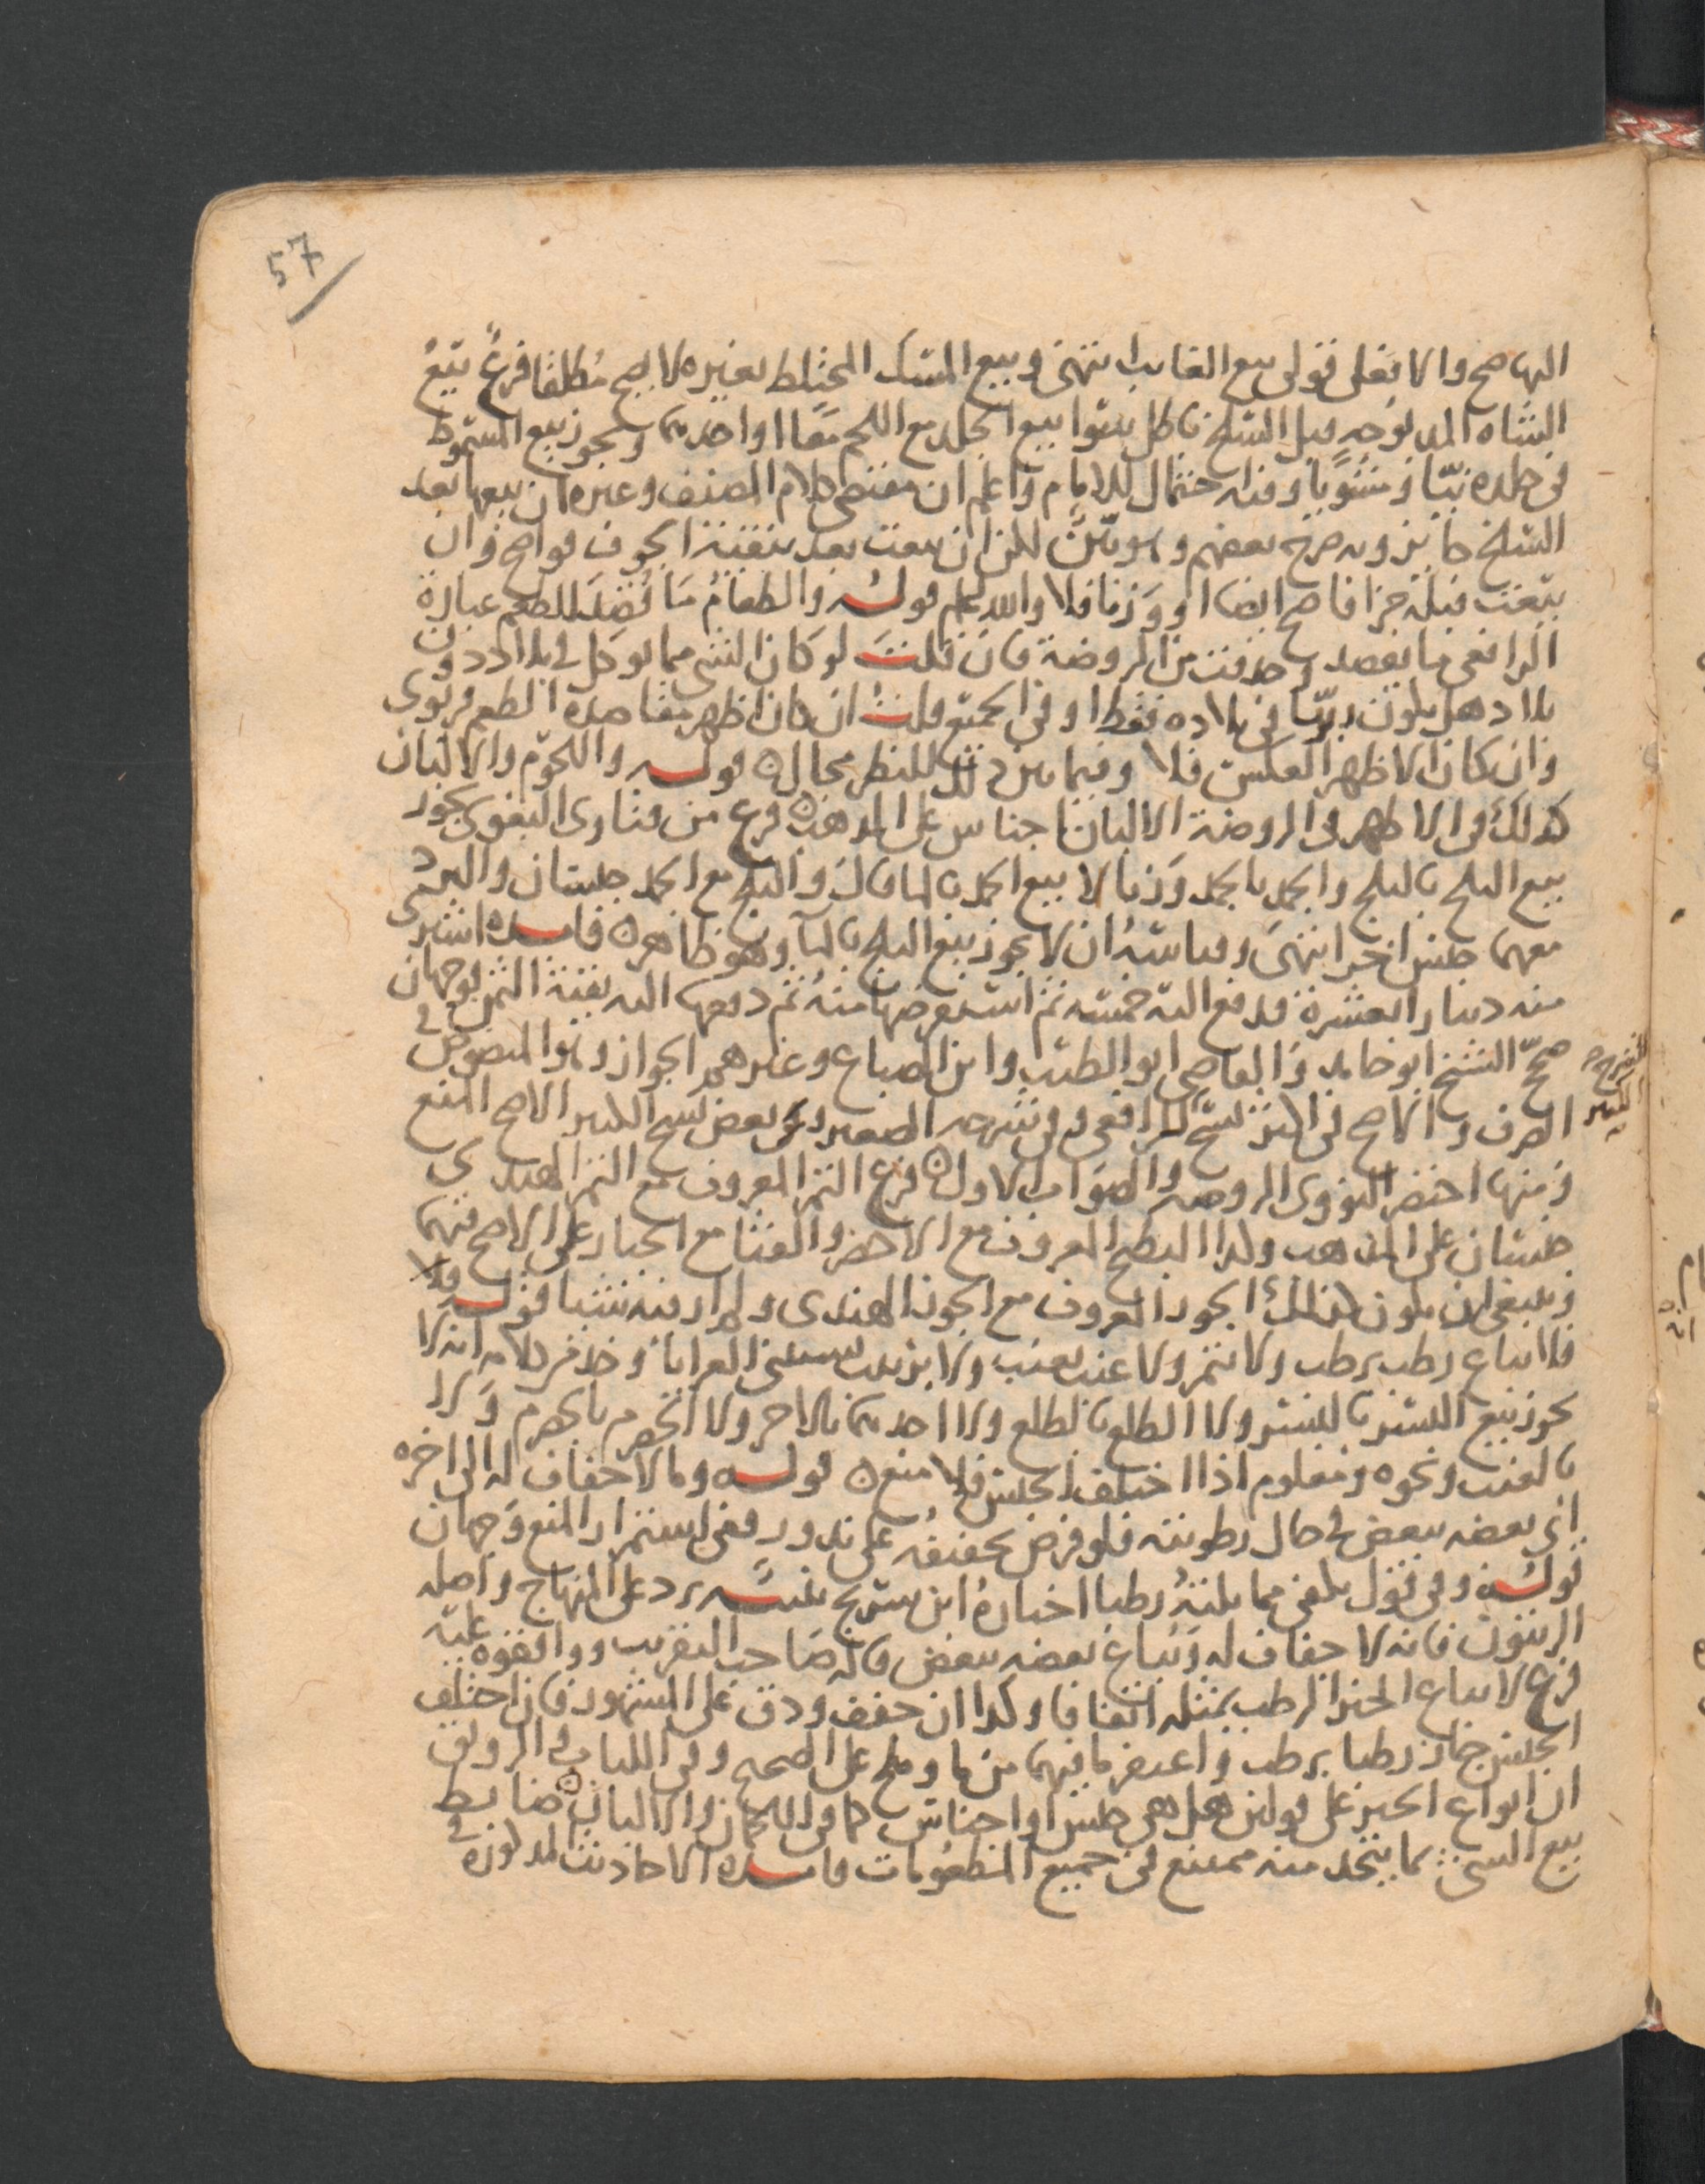 57
اليها صح والا فعلى قولي بيع الغايب انتهى وبيع المسك المختلط بغيره لا يصح مطلقا فرع بيع
الشاه المذبوحه قبل السلخ باطل سوا بيع الجلد مع اللحم معا او احدهما ويجوز بيع المسموط
في جلده نيّا ومشويا وفيه احتمال للامام واعلم ان مقتضى كلام المصنف وغيره ان بيعها بعد
السلخ جايز وبه صرح بعضهم وهو بيّن لكن ان بيعت بعد تنقية الجوف فواضح وان
بيعت قبله جزافا صح ايضا او وزنا فلا والله اعلم قوله والطعام ما قُصد للطعم عبارة
الرافعي ما يقصد وحذفت من الروضة فان قلت لو كان الشي مما يوكل في بلاد دون
بلاد هل يكون ربويا في بلاده فقط او في الجميع قلت ان كان اظهر مقاصده الطعم فربوى
وان كان الاظهر العكس فلا وفيما بين ذلك للنظر مجال قوله واللحوم والالبان
كذلك في الاظهر في الروضة الالبان اجناس على المذهب فرع من فتاوى البغوى يجوز
بيع الثلج بالثلج والجمد بالجمد وزنا لا بيع الجمد بالما قال والثلج مع الجمد جنسان والبرد
معهما جنس اخر انتهى وقياسه ان لا يجوز بيع الثلج بالمآ وهو ظاهر فايسده اشترى
منه دينارا بعشرة فدفع اليه خمسة ثم استقرضها منه ثم دفعها اليه بقية الثمن فوجهان
صحّح الشيخ ابو حامد والقاضي ابو الطيب وابن الصباغ وغيرهم الجواز وهو المنصوص في
الصرف والاصح في اكثر نسخ الرافعي وفي شرحه الصغير وفي بعض نسخ الكبير الاصح المنع
ومنها اختصر النووى الروضة والصواب الاول فرع التمر المعروف مع التمر الهندى
جنسان على المذهب وكذا البطيخ المعروف مع الاخضر والقثا مع الخيار على الاصح فيهما
وينبغي ان يكون كذلك الجوز المعروف مع الجوز الهندى ولم ار فيه شيا قوله ولا
فلا يباع رطب برطب ولا بتمر ولا عنب بعنب ولا بزبيب يستثنى العرايا وخذ من كلامه انه لا
يجوز بيع البسر بالبسر ولا الطلع بالطلع ولا احدهما بالاخر ولا الحصرم بالحصرم ولا
بالعنب ونحوه ومعلوم اذا اختلف الجنس فلا منع قوله وما لا جفاف له الى اخره
اى بعضه ببعض في حال رطوبته فلو فرض تجفيفه على ندور ففي استمرار المنع وجهان
قوله وفي قول يكفي مماثلته رطبا اختاره ابن سريج تنبيه يرد على المنهاج واصله
الزيتون فانه لا جفاف له ويباع بعضه ببعض قاله صاحب التقريب ووافقوه عليه
فرع لا يباع الخبز الرطب بمثله اتفاقا وكذا ان جفف ودق على المشهور فان اختلف
الجنس جاز رطبا برطب واغتفر ما فيهما من ما وملح على الصحيح وفي اللباب والرونق
ان انواع الخبز على قولين هل هي جنس او اجناس كما في اللحمان والالبان ضابط
بيع الشى بما يتخذ منه ممتنع في جميع المطعومات فايسده الاحاديث المذكورة في
الكبير